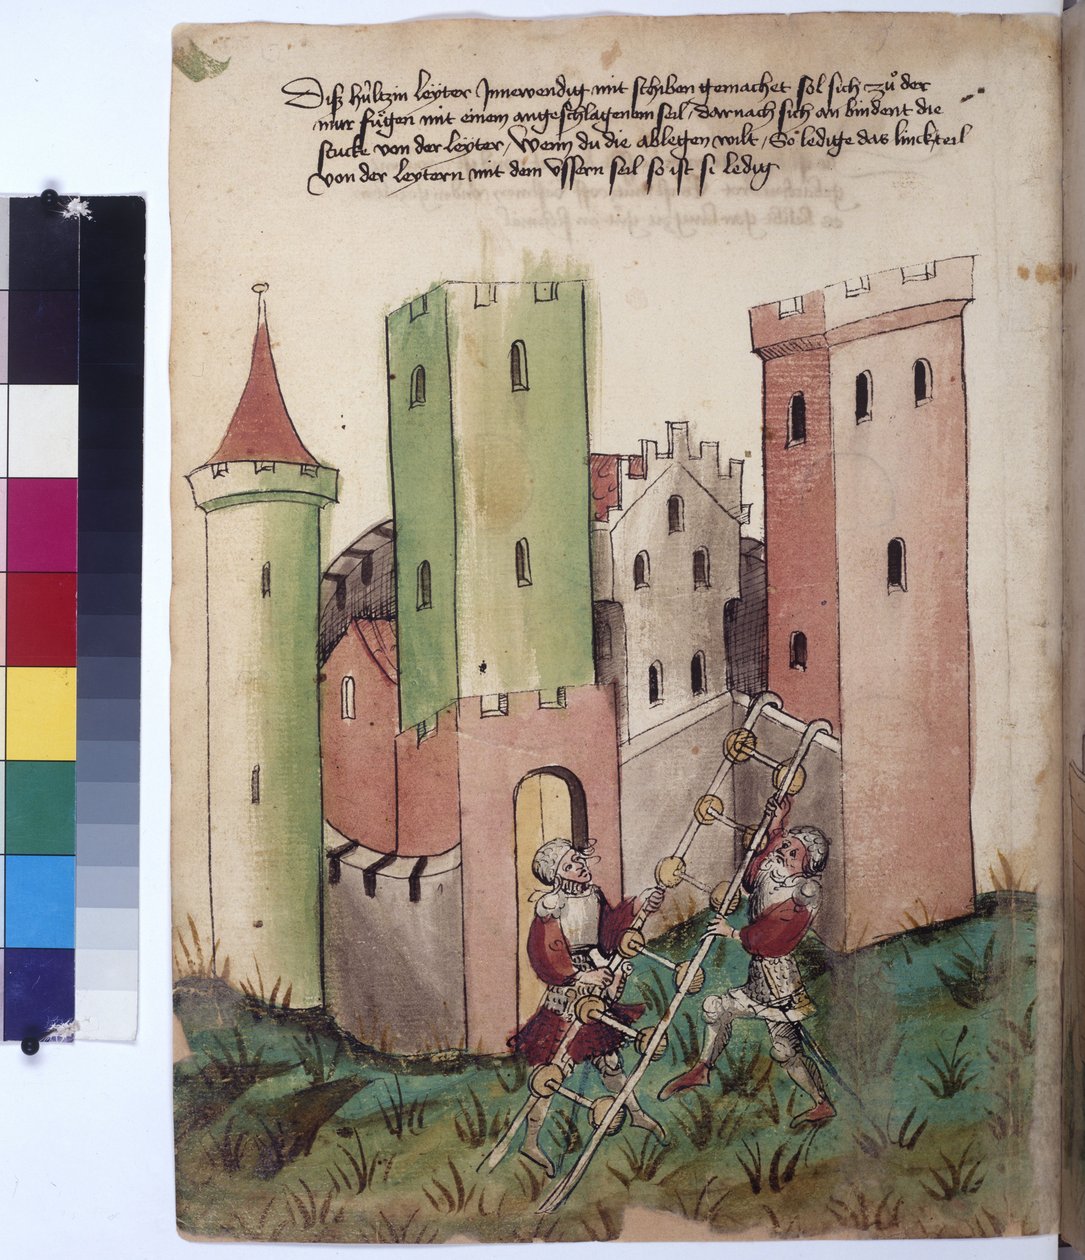 Diß hültzin leyter Innewendig mit schiben gemachet sol sich zuͦ der
mur fuͤgen mit einem angeschlagenem seil / darnach sich an bindent die
stucke von der leyter / Wenn du die ablegen wilt / So ledige das linck teil
von der leytern mit dem vssern seil so ist si ledig